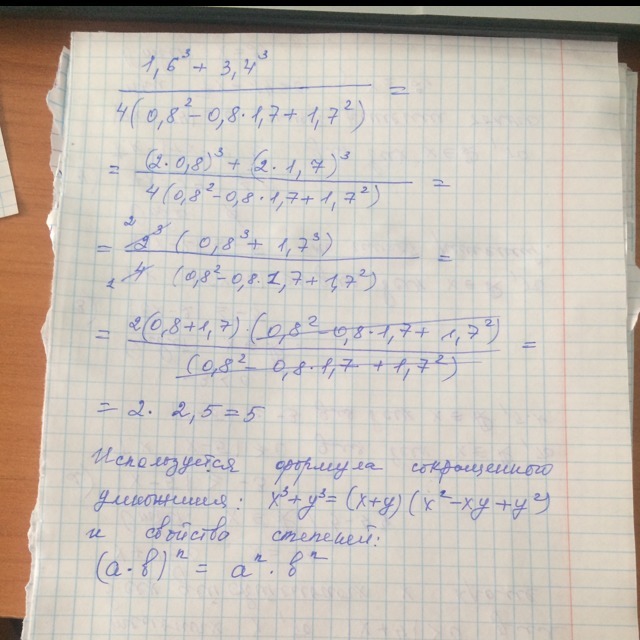 1,6³ + 3,4³
4(0,8² - 0,8·1,7 + 1,7²) =
= (2·0,8)³ + (2·1,7)³
4(0,8² - 0,8·1,7 + 1,7²) =
= 2 2³ (0,8³ + 1,7³)
2 4 (0,8² - 0,8·1,7 + 1,7²) =
= 2(0,8+1,7)·(0,8² - 0,8·1,7 + 1,7²)
(0,8² - 0,8·1,7 + 1,7²) =
= 2· 2,5 = 5
Используется формула сокращенного
умножения: x³+y³=(x+y)(x²-xy+y²)
и свойства степеней:
(a·b)ⁿ = aⁿ·bⁿ